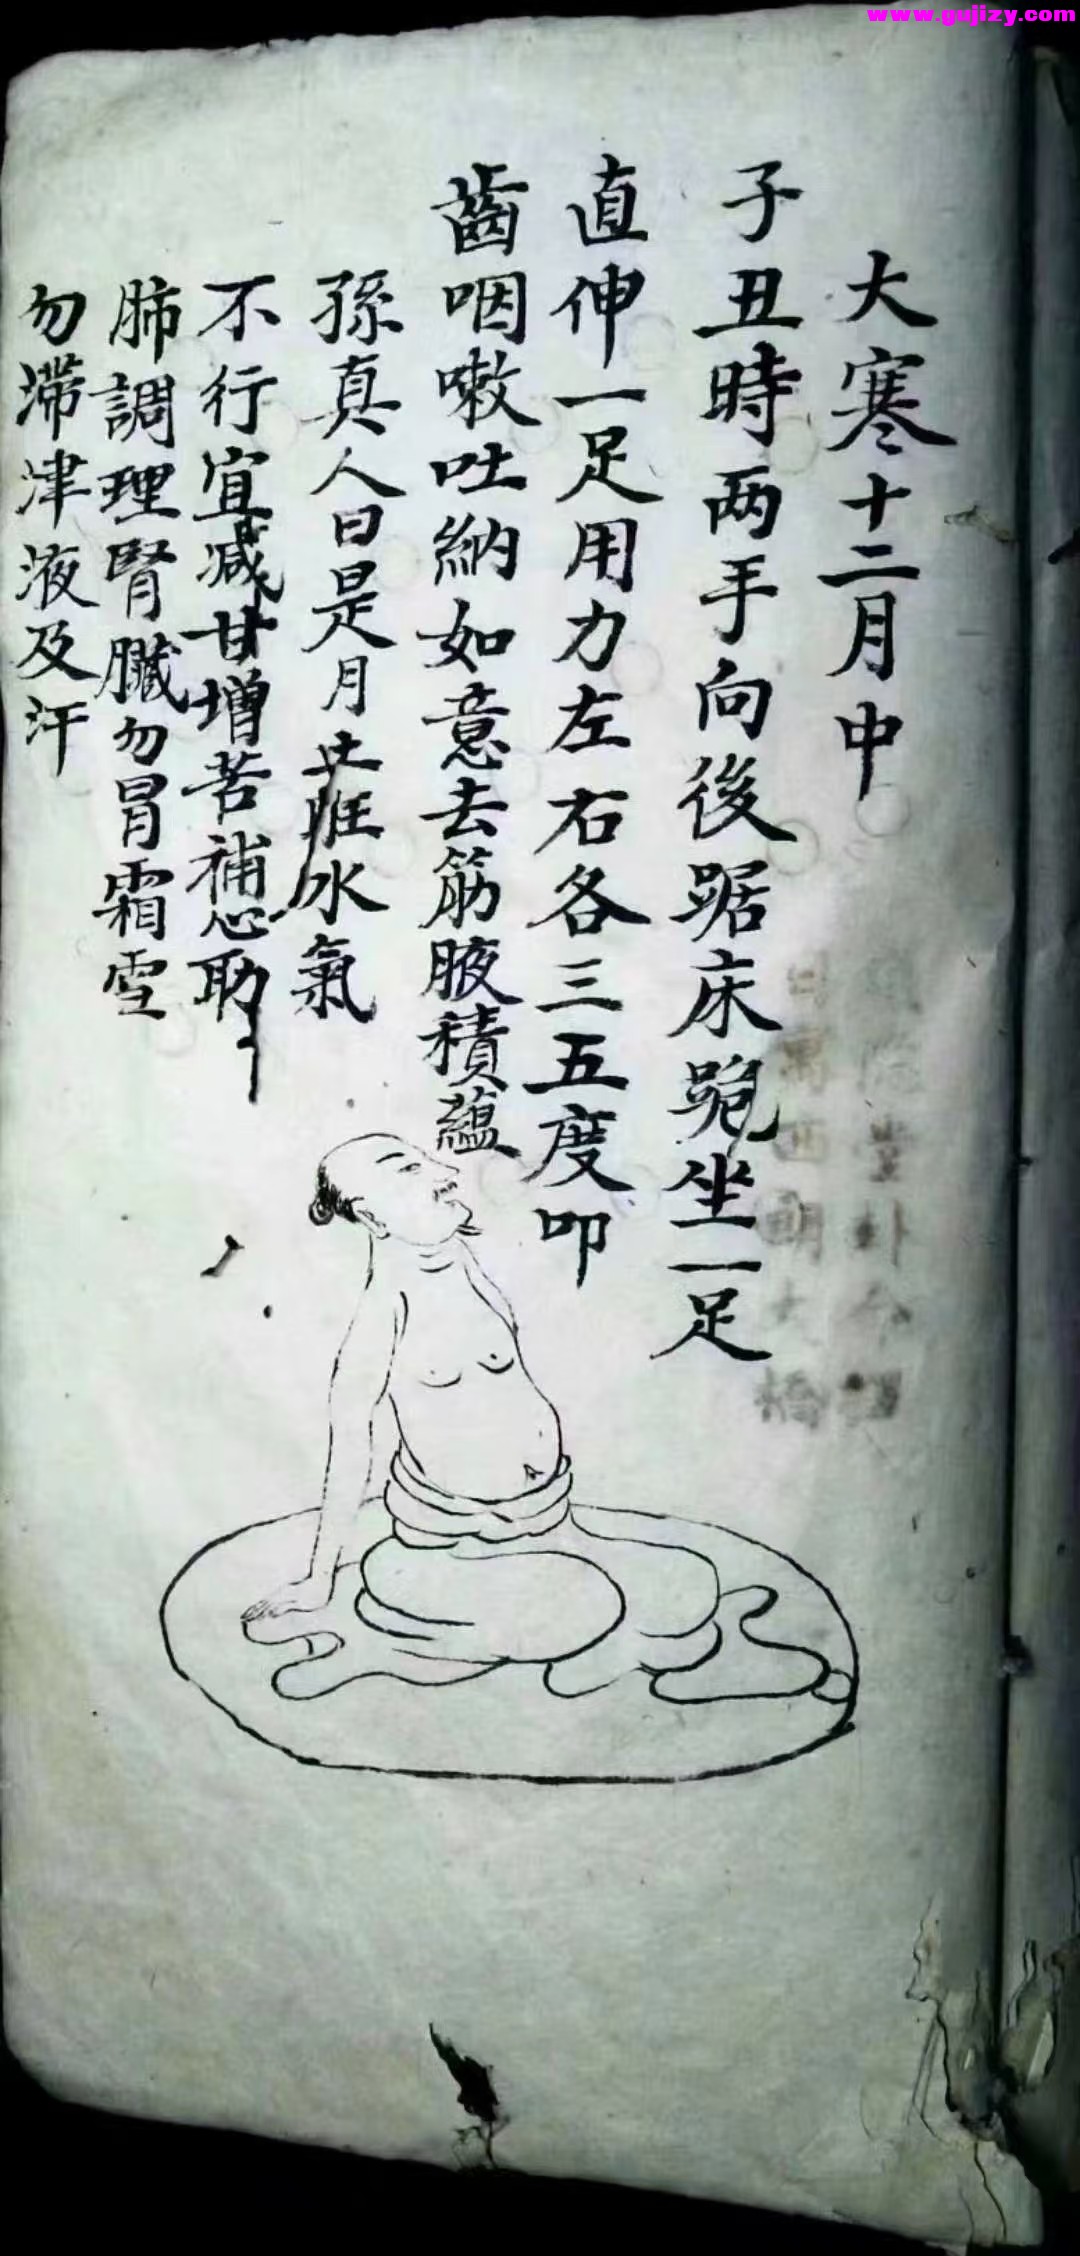 www.gujizy.com
大寒十二月中
子丑時两手向後踞床跪坐一足
直伸一足用力左右各三五度叩
齒咽嗽吐納如意去筋腋積蘊
孫真人曰是月土旺水氣
不行宜減甘增苦補心助
肺調理腎臟勿冒霜雪
勿滞津液及汗